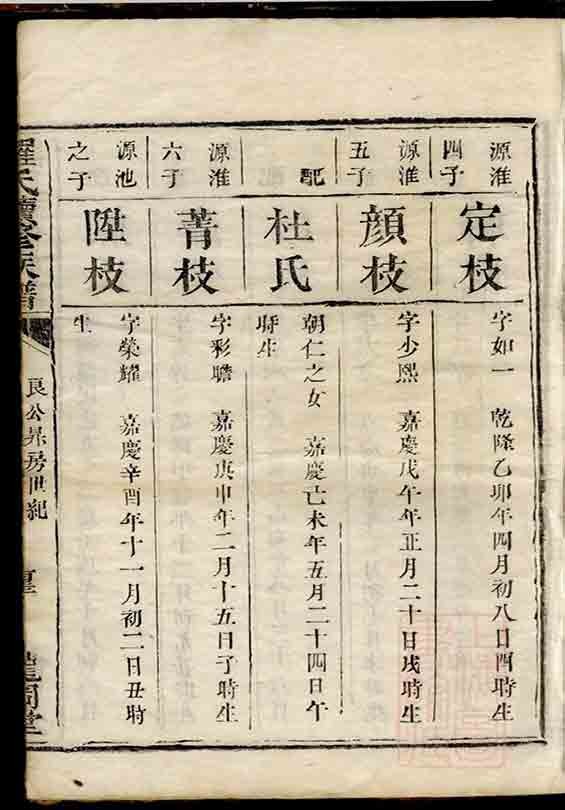 源淮
四子
定枝
字如一 乾隆乙卯年四月初八日酉時生
源淮
五子
顏枝
字少熙 嘉慶戊午年正月二十日戌時生
配
杜氏
朝仁之女 嘉慶己未年五月二十四日午
時生
源淮
六子
菁枝
字彩瞻 嘉慶庚申年二月十五日子時生
源池
之子
陞枝
字榮耀 嘉慶辛酉年十一月初二日丑時
生
羅氏續修族譜
良公昇房世紀